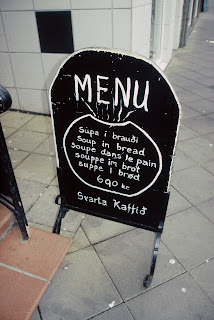 MENU
Súpa í brauði
Soup in bread
soupe dans le pain
souppe im brot
suppe i brød
690 kr
Svarta Kaffið